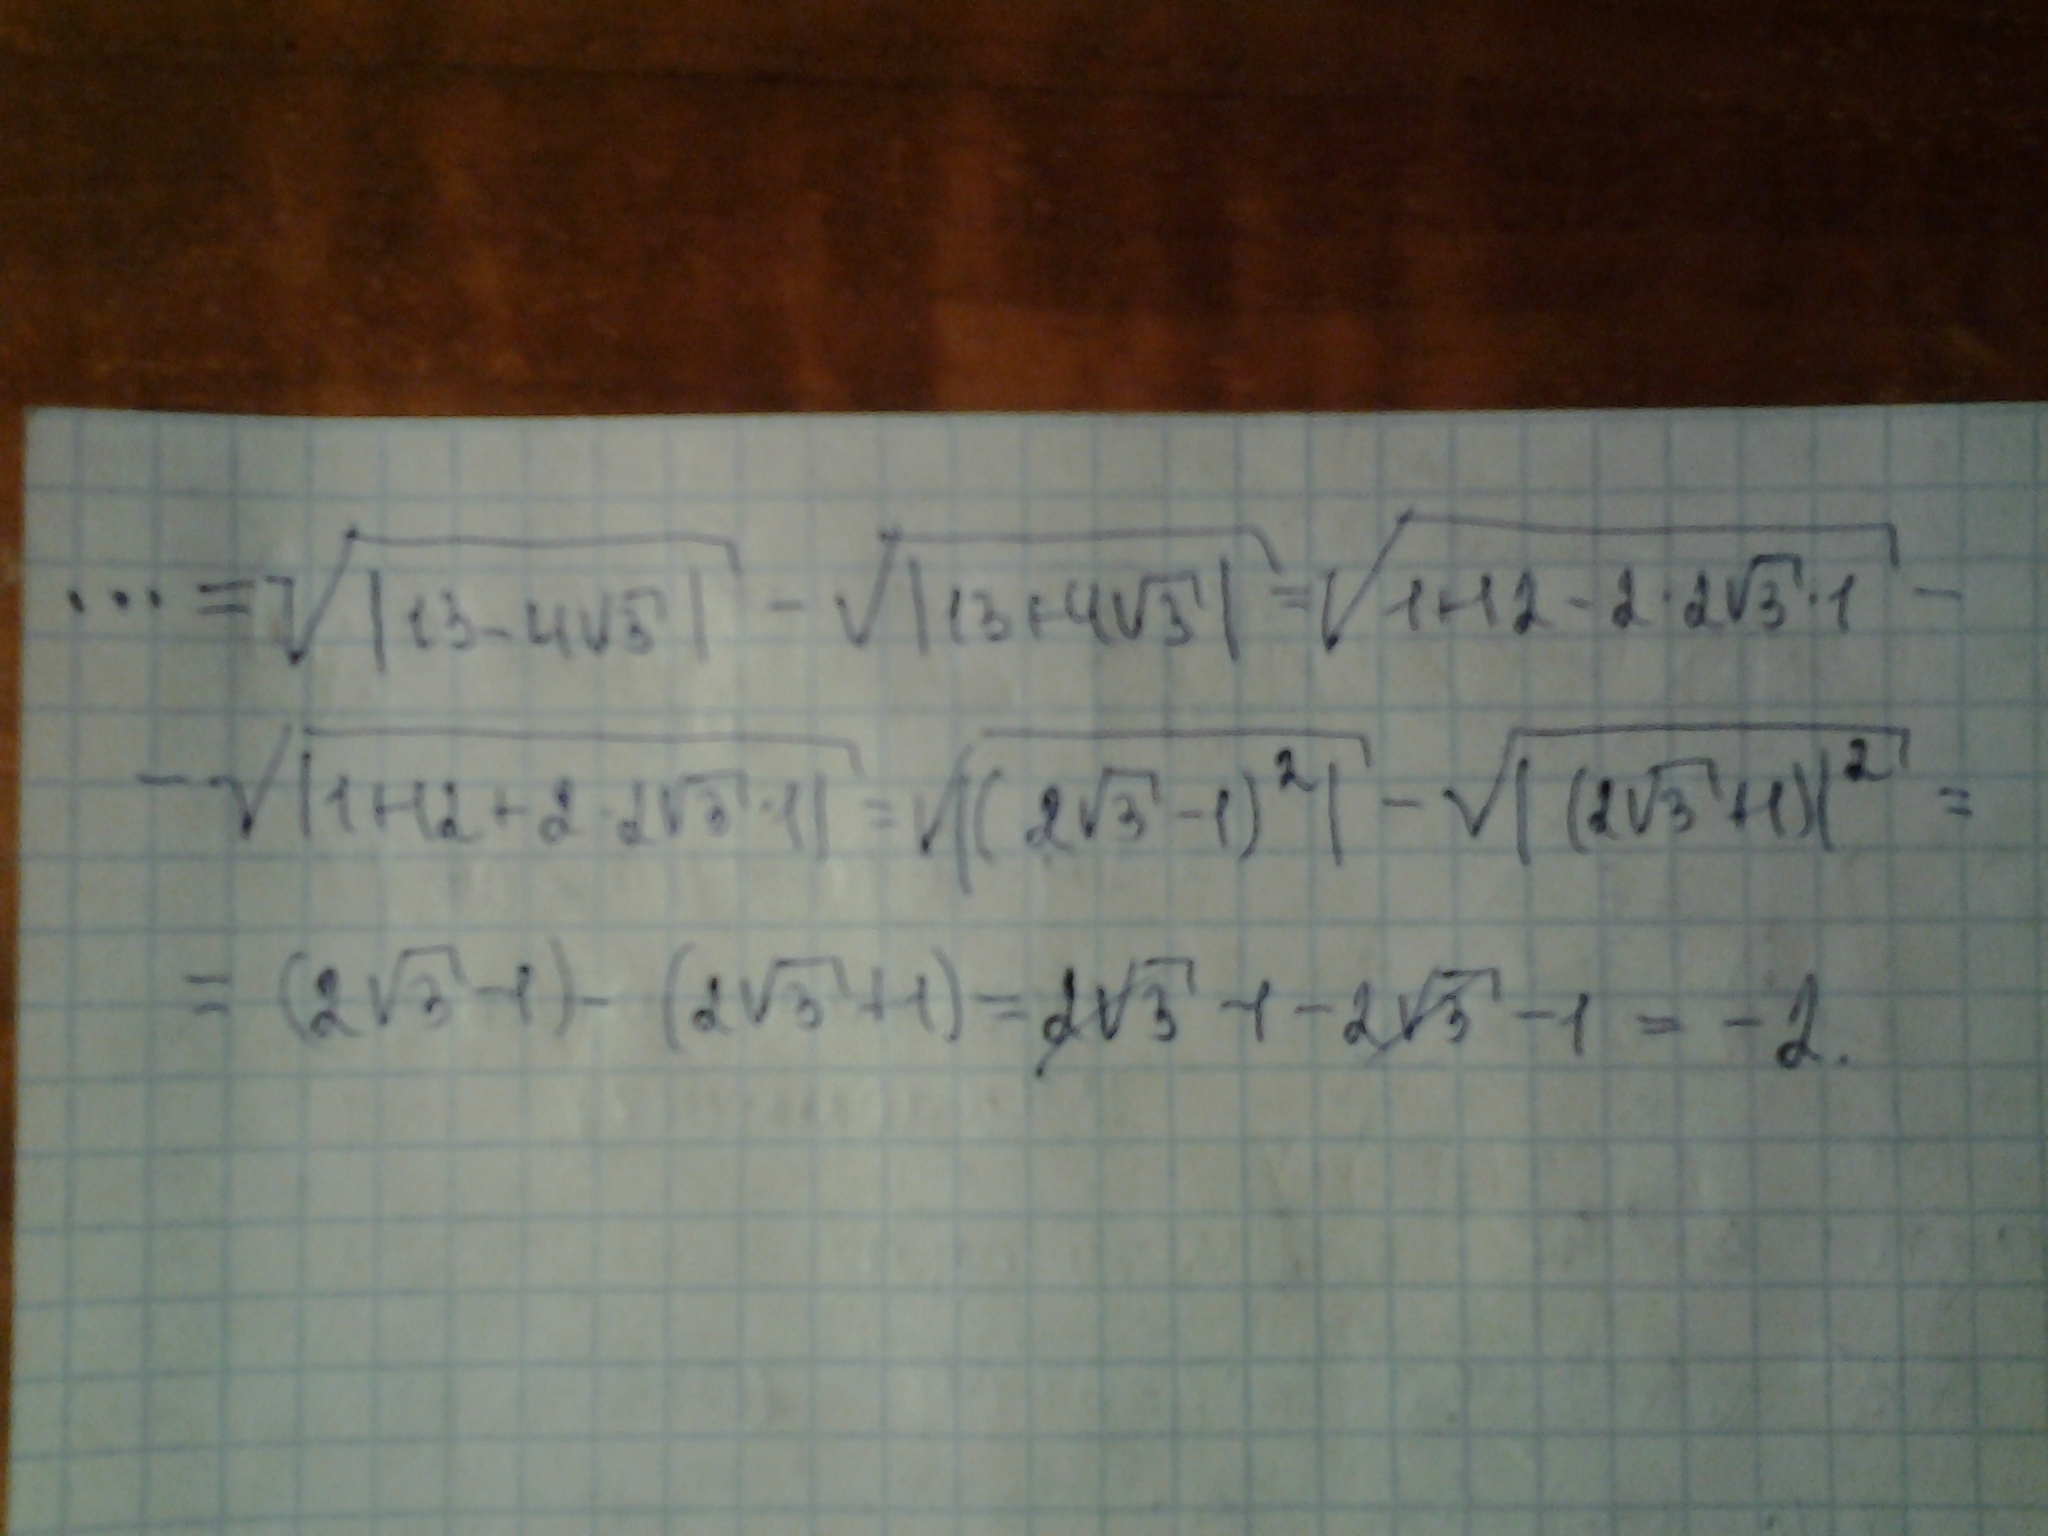 ... = √|13-4√3| - √|13+4√3| = √1+12-2·2√3·1 -
-√|1+12+2·2√3·1| = √|(2√3-1)²| - √|(2√3+1)|² =
= (2√3-1) - (2√3+1) = 2√3-1-2√3-1 = -2.